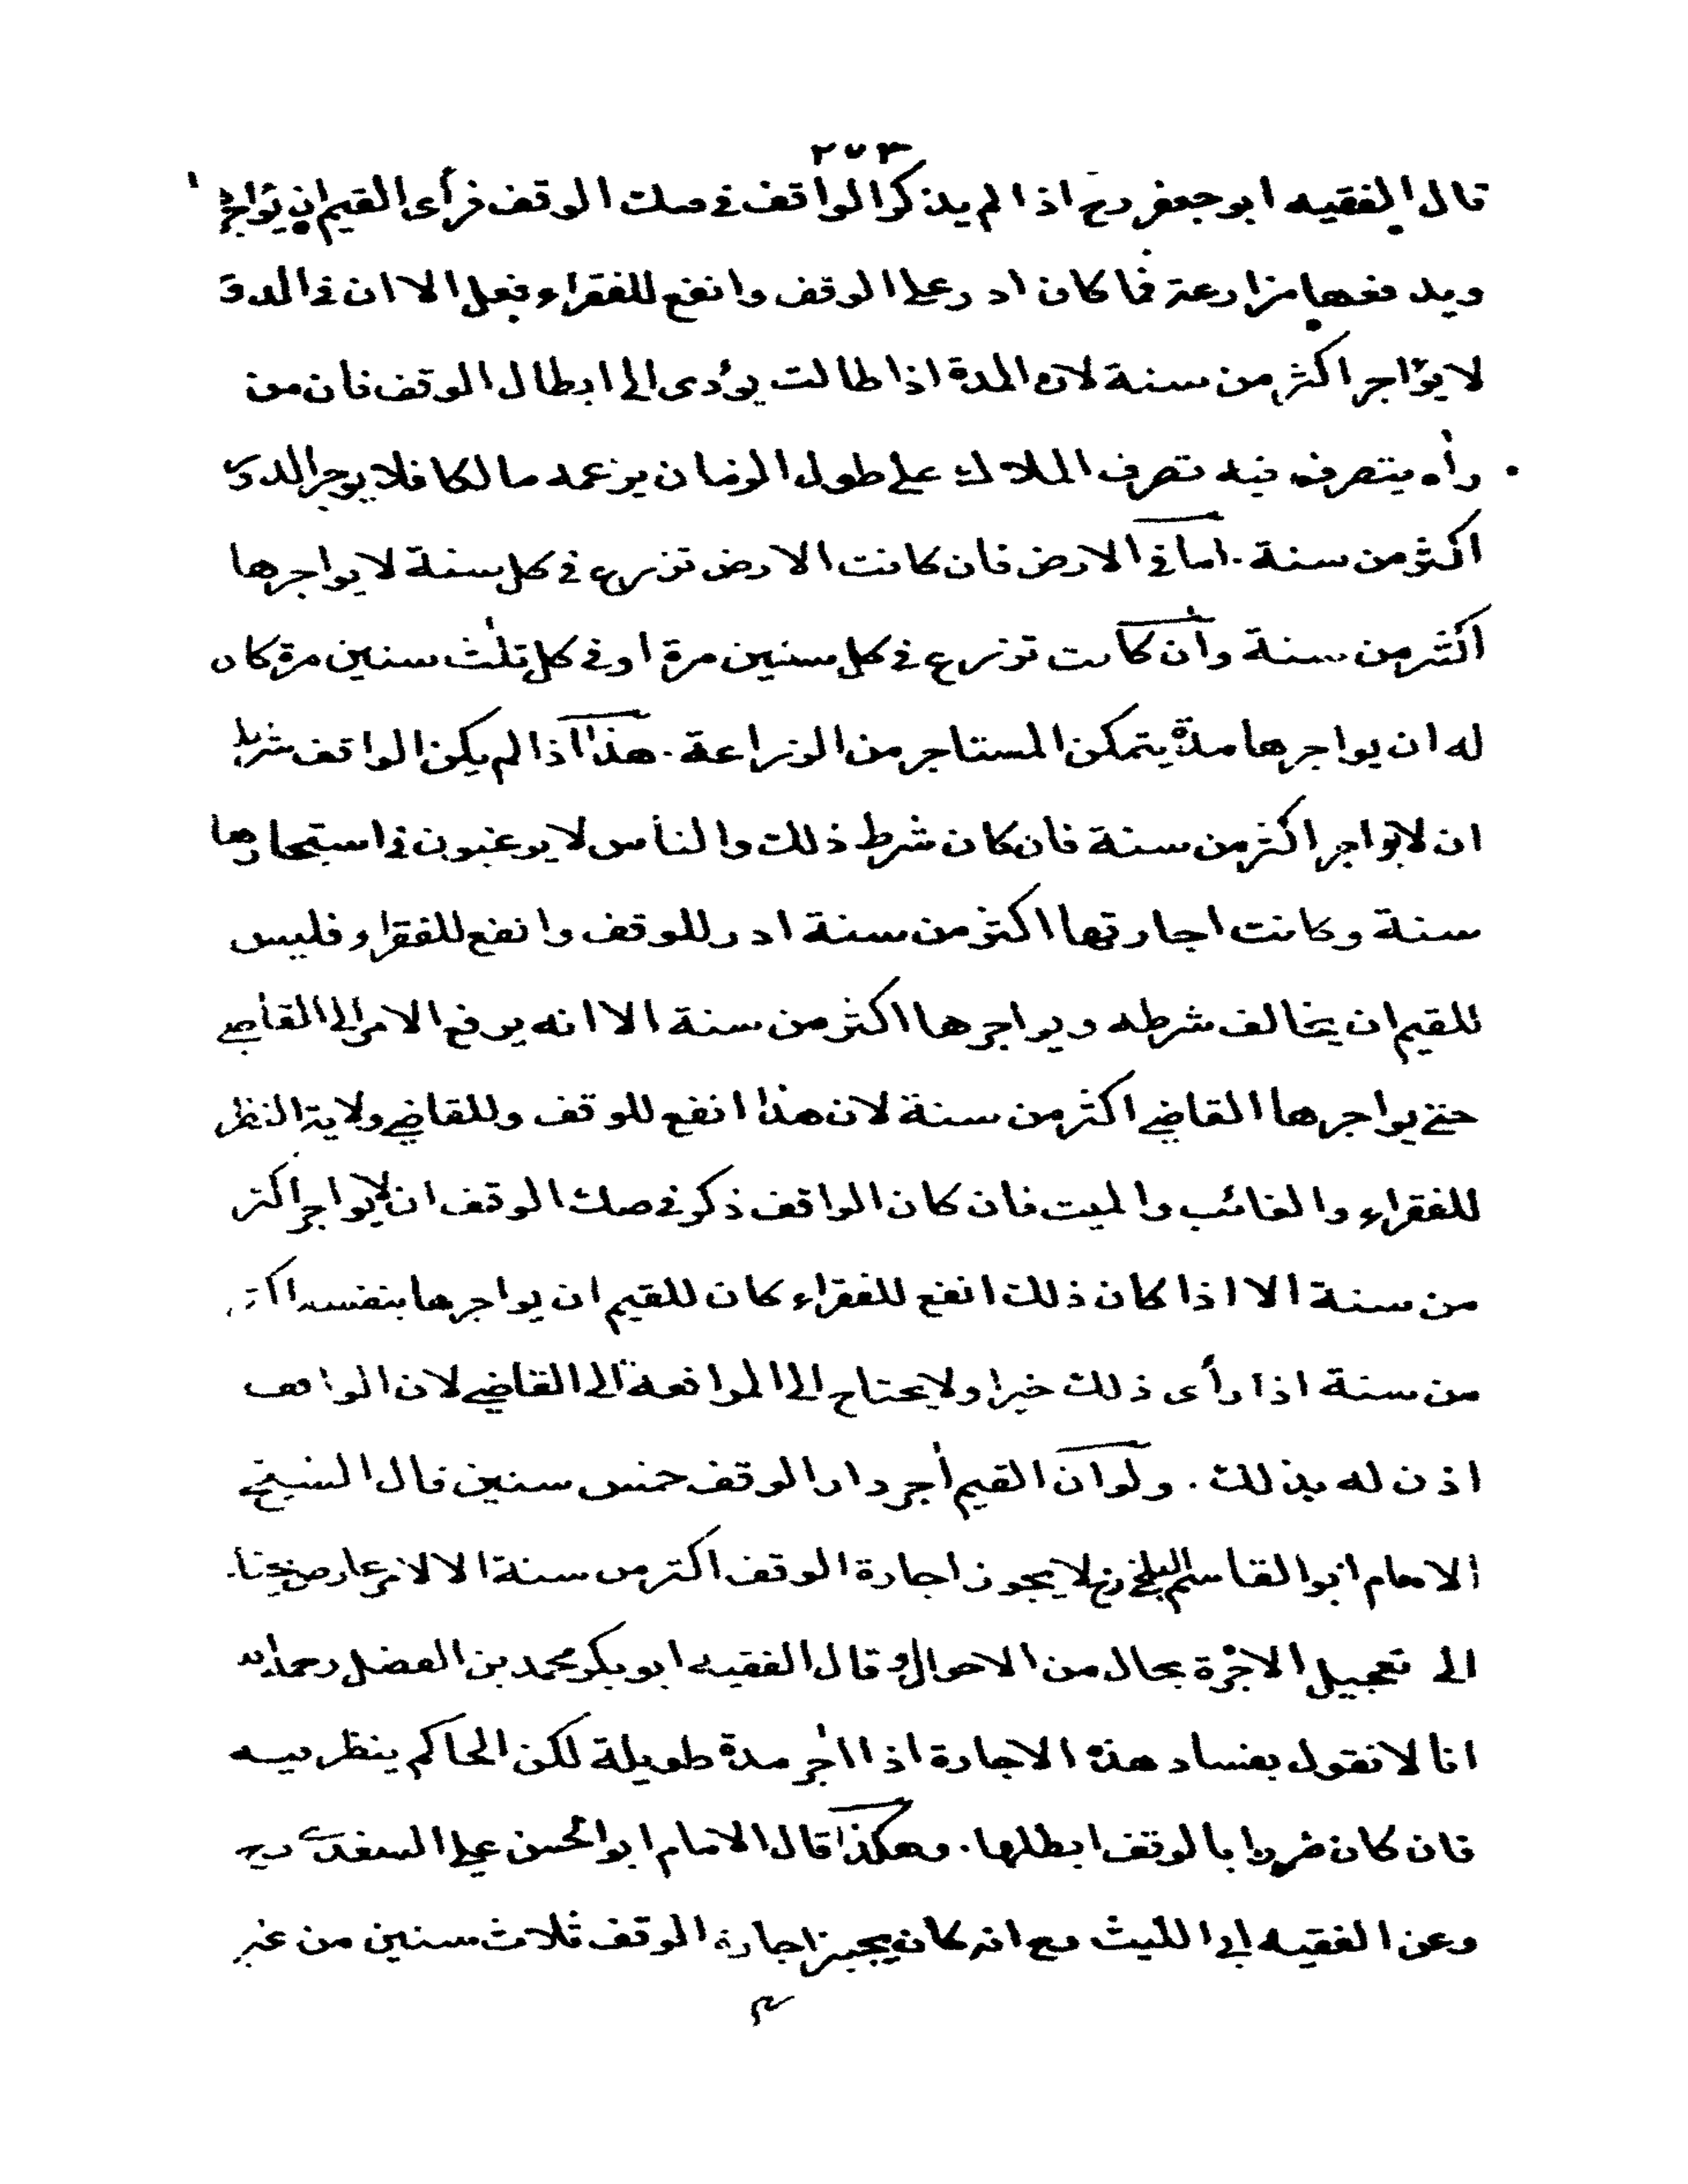 ٢٧٣
قال الفقيه ابو جعفر رح اذا لم يذكر الواقف في صك الوقف فرأى القيم ان يؤاجرها
ويدفعها مزارعة فما كان ادر على الوقف وانفع للفقراء فعل الا ان في الدور
لا يؤاجر اكثر من سنة لان المدة اذا طالت يؤدى الى ابطال الوقف فان من
رأه يتصرف فيه تصرف الملاك على طول الزمان يزعمه مالكا فلا يوجر الدور
اكثر من سنة. اما في الارض فان كانت الارض تزرع في كل سنة لا يواجرها
اكثر من سنة وان كانت تزرع في كل سنين مرة او في كل ثلث سنين مرة كان
له ان يواجرها مدة يتمكن المستاجر من الزراعة. هذا اذا لم يكن الواقف شرط
ان لا يواجر اكثر من سنة فان كان شرط ذلك والناس لا يرغبون في استيجارها
سنة وكانت اجارتها اكثر من سنة ادر للوقف وانفع للفقراء فليس
للقيم ان يخالف شرطه ويواجرها اكثر من سنة الا انه يرفع الامر الى القاضي
حتى يواجرها القاضي اكثر من سنة لان هذا انفع للوقف وللقاضي ولاية النظر
للفقراء والغائب والميت فان كان الواقف ذكر في صك الوقف ان لا يواجر اكثر
من سنة الا اذا كان ذلك انفع للفقراء كان للقيم ان يواجرها بنفسه اكثر
من سنة اذا رأى ذلك خيرا ولا يحتاج الى المرافعة الى القاضي لان الواقف
اذن له بذلك. ولو ان القيم أجر دار الوقف خمس سنين قال الشيخ
الامام ابو القاسم البلخي رح لا يجوز اجارة الوقف اكثر من سنة الا لامر عارض يحتاج
الى تعجيل الاجرة بحال من الاحوال و قال الفقيه ابو بكر محمد بن الفضل رحمه الله
انا لا نقول بفساد هذه الاجارة اذا اجر مدة طويلة لكن الحاكم ينظر فيه
فان كان ضررا بالوقف ابطلها. وهكذا قال الامام ابو الحسن على السغدي رح
وعن الفقيه ابى الليث رح انه كان يجيز اجارة الوقف ثلاث سنين من غير